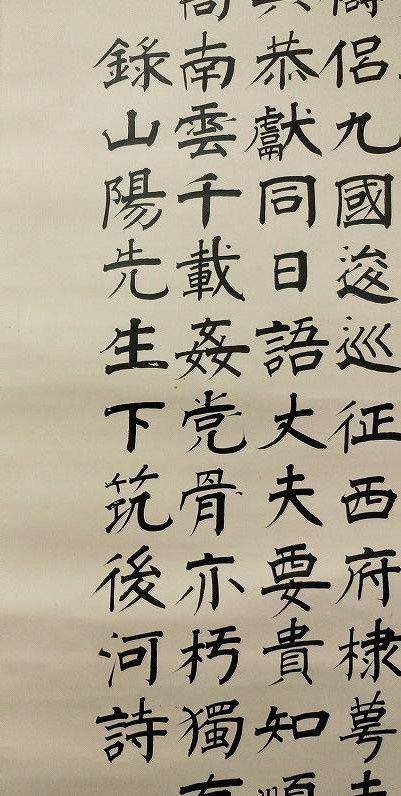 侶九國逡巡征西府棣萼
恭獻同日語丈夫要貴知順
南雲千載姦党骨亦朽獨有
錄山陽先生下筑後河詩